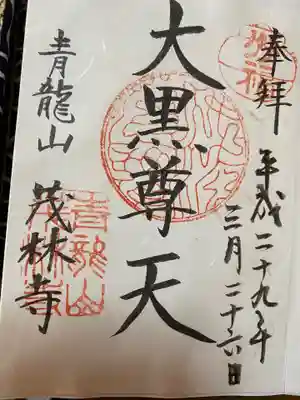 奉拝
平成二十九年
三月二十六日
大黒尊天
青龍山
茂林寺
青龍山